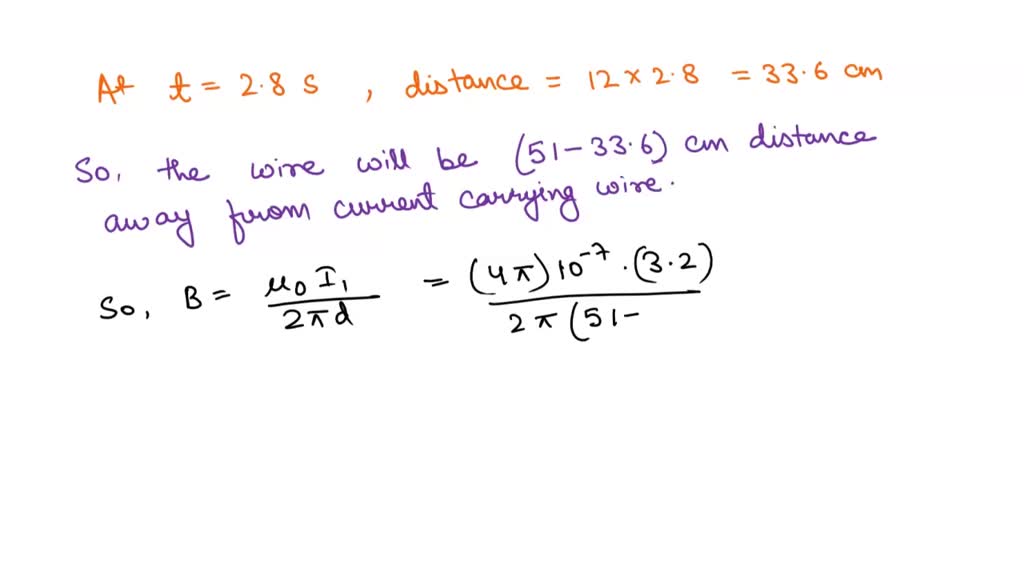 At t = 2.8 s , distance = 12 × 2.8 = 33.6 cm
So, the wire will be (51-33.6) cm distance
away from current carrying wire.
So, B = μ₀ I₁ / 2πd = (4π)10⁻⁷ . (3.2) / 2π (51-